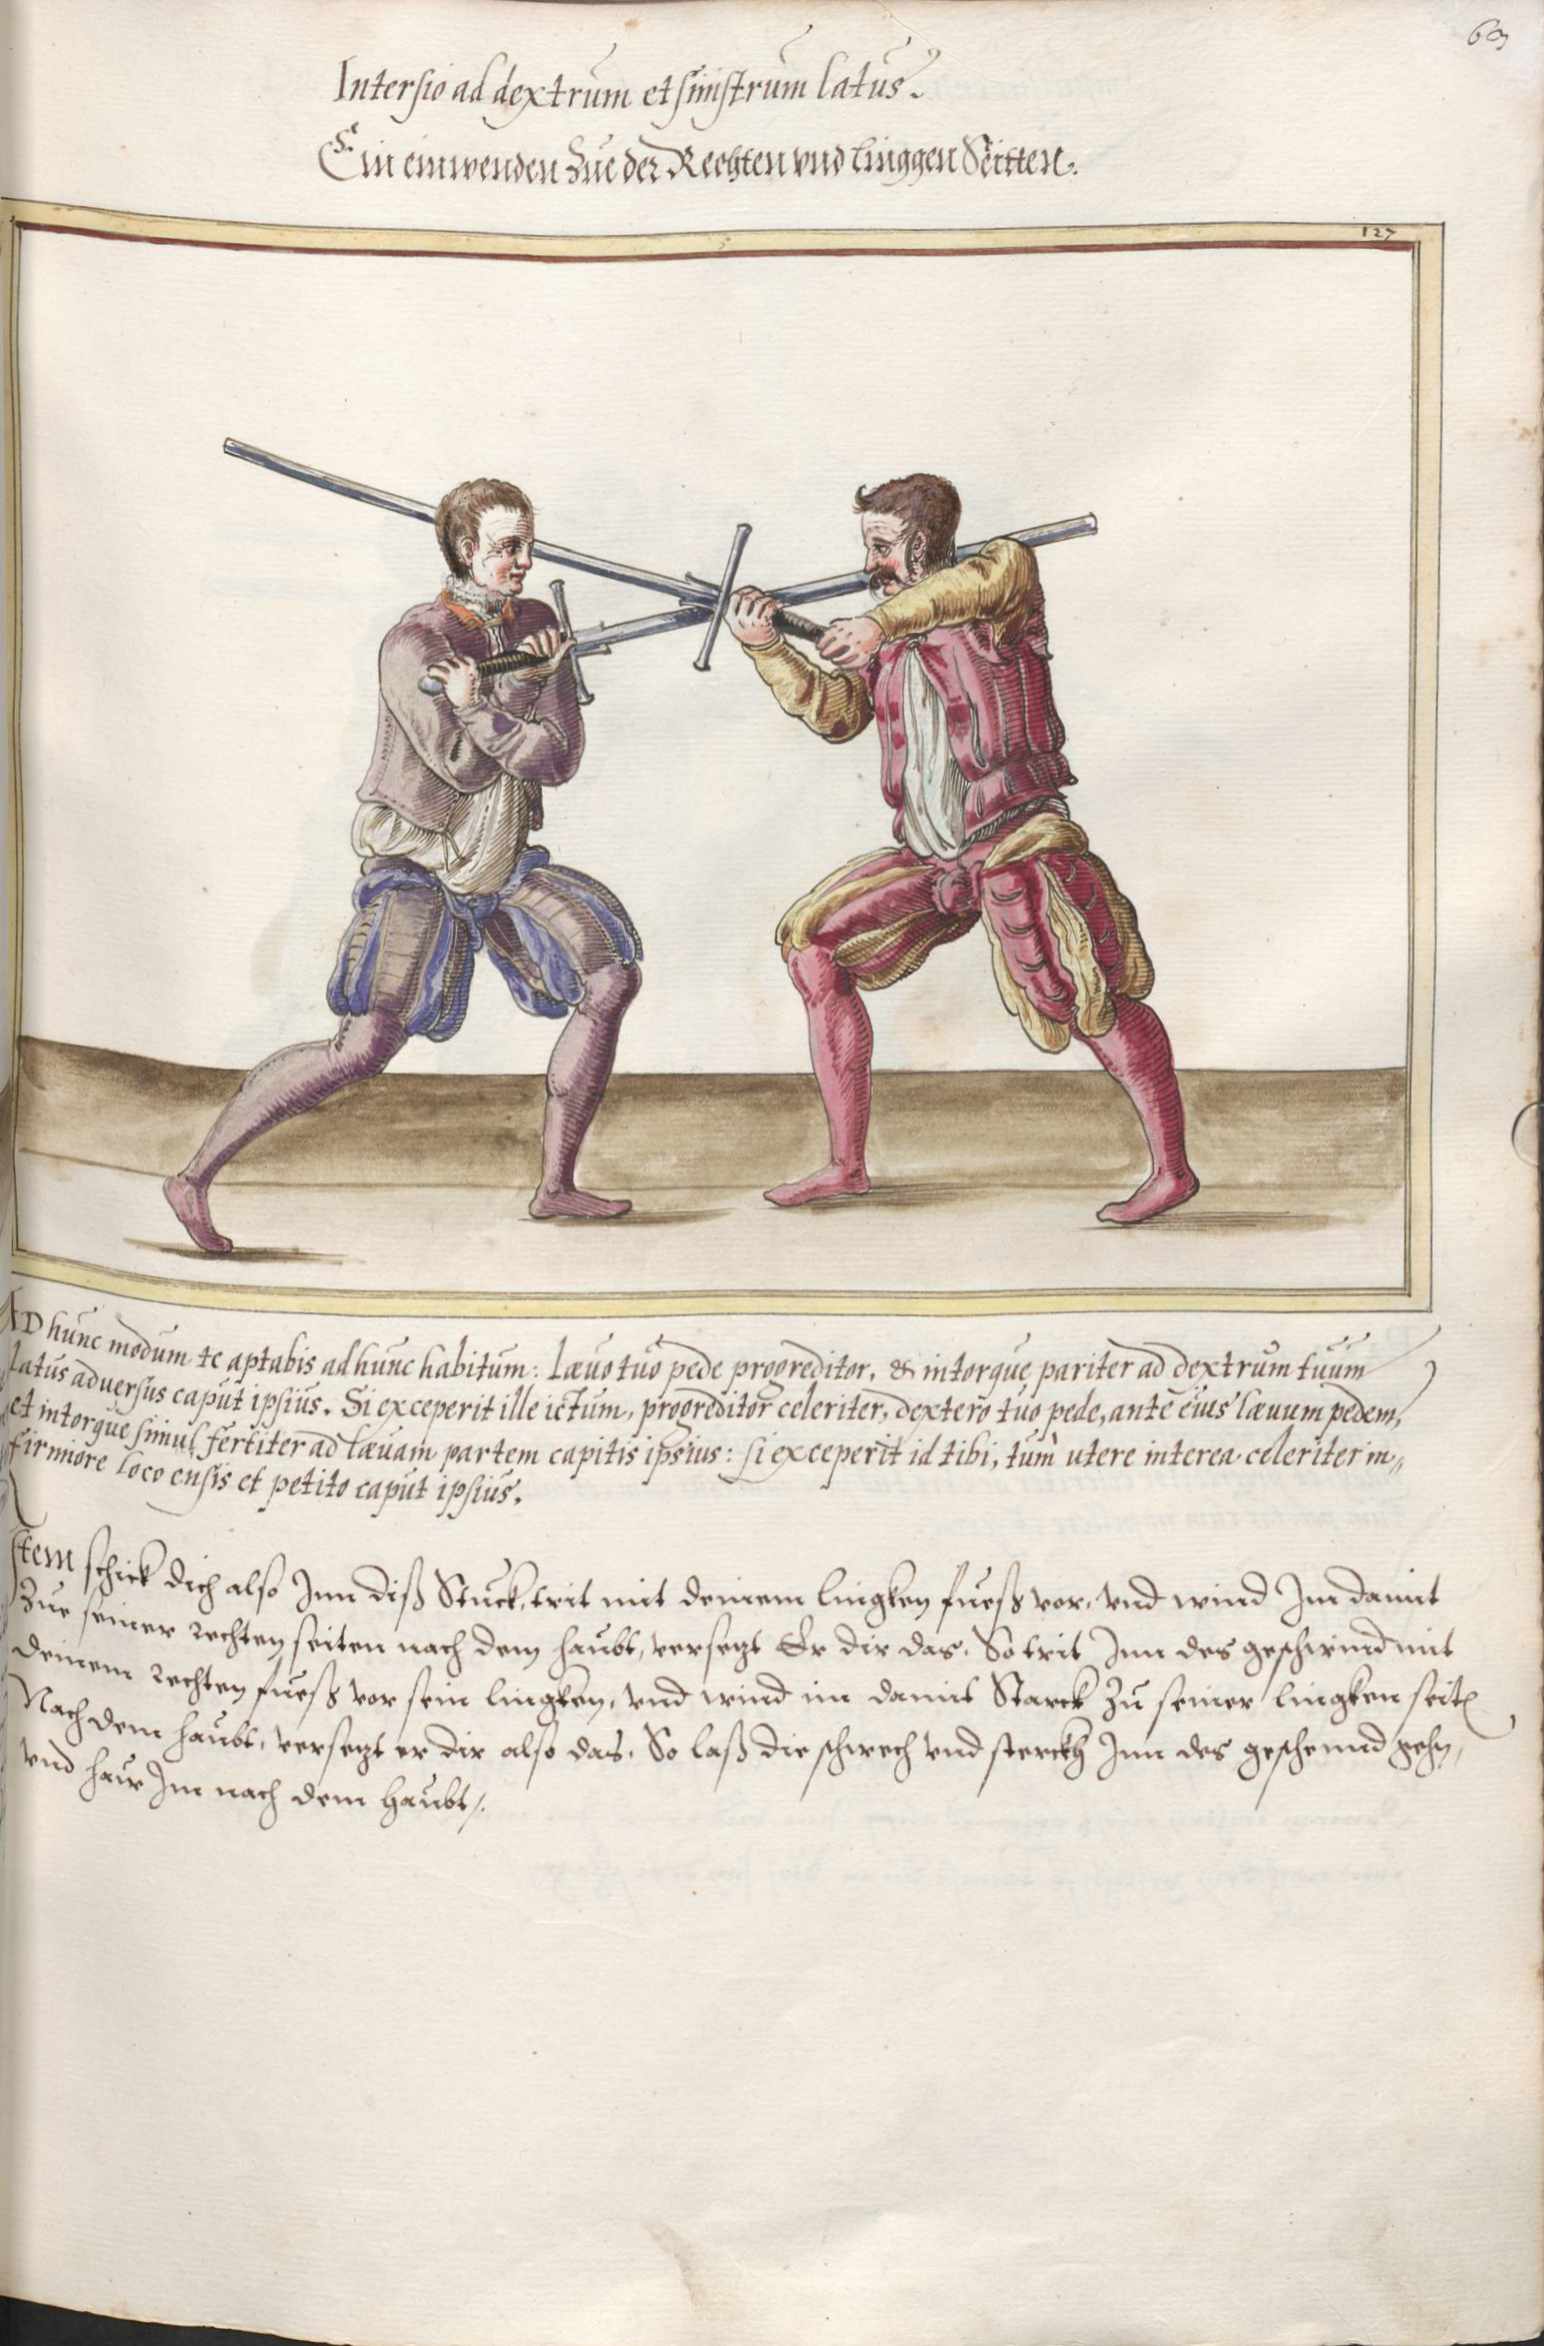 63
Intersio ad dextrum et sinistrum latus.
Ein einwenden zue der Rechten vnd linggen Seitten.
127
AD hunc modum te aptabis ad hunc habitum: Læuo tuo pede progreditor, & intorque pariter ad dextrum tuum
latus aduersus caput ipsius. Si exceperit ille ictum, progreditor celeriter, dextero tuo pede, ante eius læuum pedem,
et intorque simul fertiter ad læuam partem capitis ipsius: si exceperit id tibi, tum utere interea celeriter in„
firmiore loco ensis et petito caput ipsius.
Item schick dich also Inn diß Stuck, trit mit deinem lingken fueß vor, vnd wind Im damit
Zue seiner rechten seiten nach dem haubt, versezt Er dir das, So trit Inn des geschwind mit
deinem rechten fueß vor sein lingken, vnd wind im damit Starck zu seiner lingken seit
Nach dem haubt, versezt er dir also das, So laß die schwech vnd sterckh Inn des geschwind gehn,
vnd haw Im nach dem haubt/.